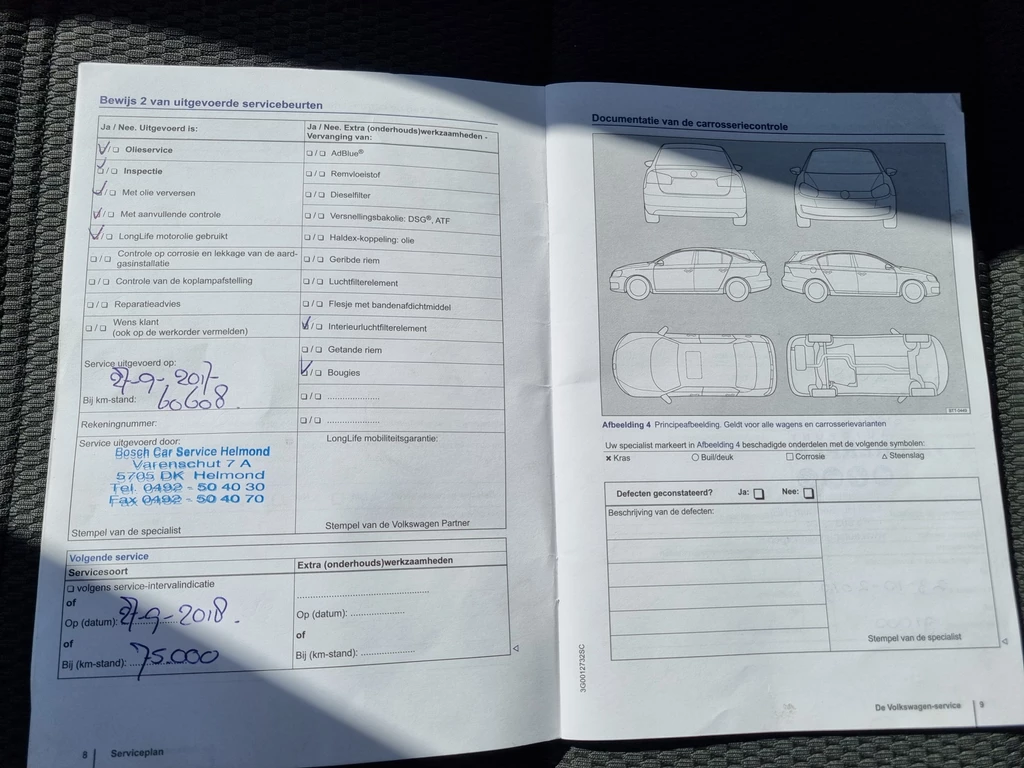 Bewijs 2 van uitgevoerde servicebeurten
Ja / Nee. Uitgevoerd is:
Olieservice
Inspectie
Met olie verversen
Met aanvullende controle
LongLife motorolie gebruikt
Controle op corrosie en lekkage van de aard-
gasinstallatie
Controle van de koplampafstelling
Reparatieadvies
Wens klant
(ook op de werkorder vermelden)
Service uitgevoerd op:
27-9-2017
Bij km-stand: 60608.
Rekeningnummer:
Service uitgevoerd door:
Bosch Car Service Helmond
Varenschut 7 A
5705 DK Helmond
Tel. 0492 - 50 40 30
Fax 0492 - 50 40 70
Stempel van de specialist
Ja / Nee. Extra (onderhouds)werkzaamheden -
Vervanging van:
AdBlue®
Remvloeistof
Dieselfilter
Versnellingsbakolie: DSG®, ATF
Haldex-koppeling: olie
Geribde riem
Luchtfilterelement
Flesje met bandenafdichtmiddel
Interieurluchtfilterelement
Getande riem
Bougies
LongLife mobiliteitsgarantie:
Stempel van de Volkswagen Partner
Volgende service
Servicesoort
volgens service-intervalindicatie
of
Op (datum): 27-9-2018.
of
Bij (km-stand): 75.000
Extra (onderhouds)werkzaamheden
Op (datum):
of
Bij (km-stand):
8 | Serviceplan
Documentatie van de carrosseriecontrole
Afbeelding 4 Principeafbeelding. Geldt voor alle wagens en carrosserievarianten
Uw specialist markeert in Afbeelding 4 beschadigde onderdelen met de volgende symbolen:
× Kras ○ Buil/deuk □ Corrosie △ Steenslag
Defecten geconstateerd? Ja: □ Nee: □
Beschrijving van de defecten:
Stempel van de specialist
3G0012732SC
De Volkswagen-service | 9